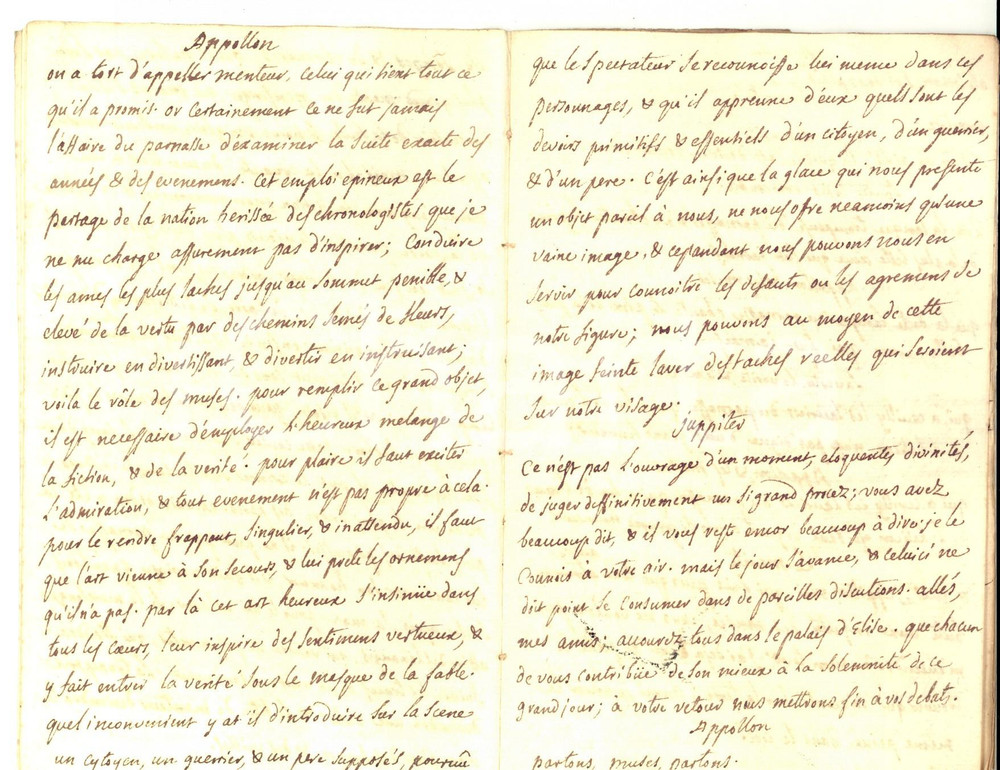 Appollon
on a tort d'appeller menteur, celui qui tient tout ce
qu'il a promis. or certainement ce ne fut jamais
l'affaire du parnasse d'éxaminer la suite exacte des
années & des evenemens. cet emploi epineux est le
partage de la nation herissée des chronologistes que je
ne me charge assurement pas d'inspirer; conduire
les ames les plus laches jusqu'au sommet penible, &
elevé de la vertu par des chemins semés de fleurs,
instruire en divertissant, & divertir en instruisant;
voila le rôle des muses. pour remplir ce grand objet,
il est necessaire d'émployer l'heureux melange de
la fiction, & de la verité. pour plaire il faut exciter
l'admiration, & tout evenement n'est pas propre à cela.
pour le rendre frappant, singulier, & inattendu, il faut
que l'art vienne à son secours, & lui prete les ornemens
qu'il n'a pas. par là cet art heureux s'insinüe dans
tous les cœurs, leur inspire des sentimens vertueux, &
y fait entrer la verité sous le masque de la fable.
quel inconvenient y at il d'introduire sur la scene
un cytoyen, un guerrier, & un pere supposés, pourvû
que le spectateur se reconnoisse lui meme dans ces
personnages, & qu'il apprenne d'eux quels sont les
devoirs primitifs & essentiels d'un citoyen, d'un guerrier,
& d'un pere. c'est ainsi que la glace qui nous presente
un objet pareil à nous, ne nous offre neamoins qu'une
vaine image, & cependant nous pouvons nous en
servir pour connoitre les defauts ou les agremens de
notre figure; nous pouvons au moyen de cette
image feinte laver des taches réelles qui seroient
sur notre visage.
juppiter
Ce n'est pas l'ouvrage d'un moment, eloquentes divinités,
de juger deffinitivement un si grand procez; vous avez
beaucoup dit, & il vous reste encor beaucoup à dire. je le
connois à votre air. mais le jour s'avance, & celui ci ne
doit point se consumer dans de pareilles discutions. allés,
mes amis; accourez tous dans le palais d'Elise. que chacun
de vous contribüe de son mieux à la solemnité de ce
grand jour; à votre retour nous mettrons fin à vos debats.
Appollon
partons, muses, partons.